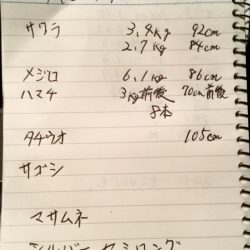 サワラ 3.4kg 92cm
2.7kg 84cm
メジロ 6.1kg 86cm
ハマチ 3kg前後 70cm前後
8本
タチウオ 105cm
サゴシ
マサムネ